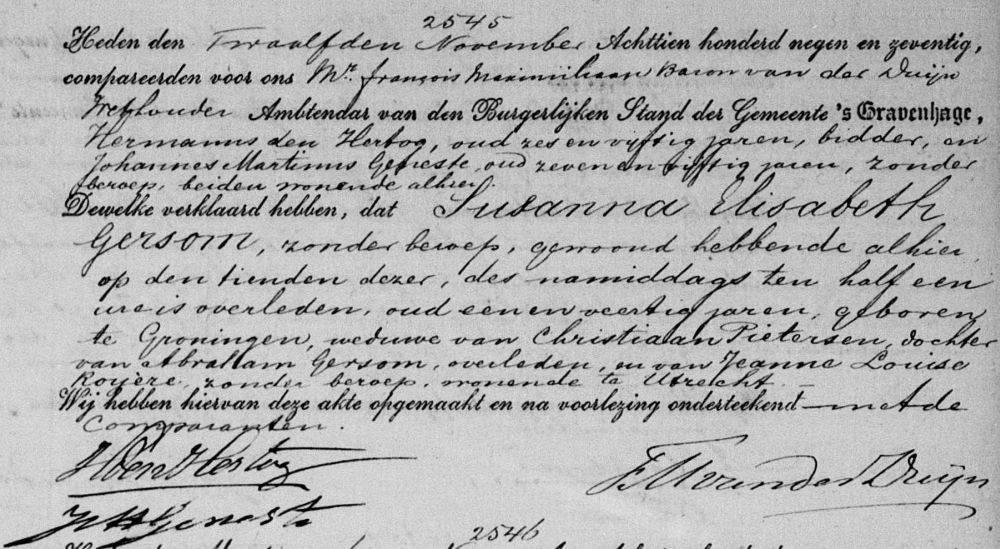 2545
Heden den Twaalfden November Achttien honderd negen en zeventig,
compareerden voor ons Mr. François Maximiliaan Baron van der Duijn
Wethouder Ambtenaar van den Burgerlijken Stand der Gemeente 's Gravenhage,
Hermanus den Hertog, oud zes en vijftig jaren, bidder, en
Johannes Martinus Geneste, oud zeven en vijftig jaren, zonder
beroep, beiden wonende alhier.
Dewelke verklaard hebben, dat Susanna Elisabeth
Gersom, zonder beroep, gewoond hebbende alhier,
op den tienden dezer, des namiddags ten half een
ure is overleden, oud een en veertig jaren, geboren
te Groningen, weduwe van Christiaan Pietersen, dochter
van Abraham Gersom, overleden, en van Jeanne Louise
zonder beroep, wonende te Utrecht.
Wij hebben hiervan deze akte opgemaakt en na voorlezing onderteekend met de
Comparanten.
H den Hertog
F M van der Duijn
J M Geneste
2546